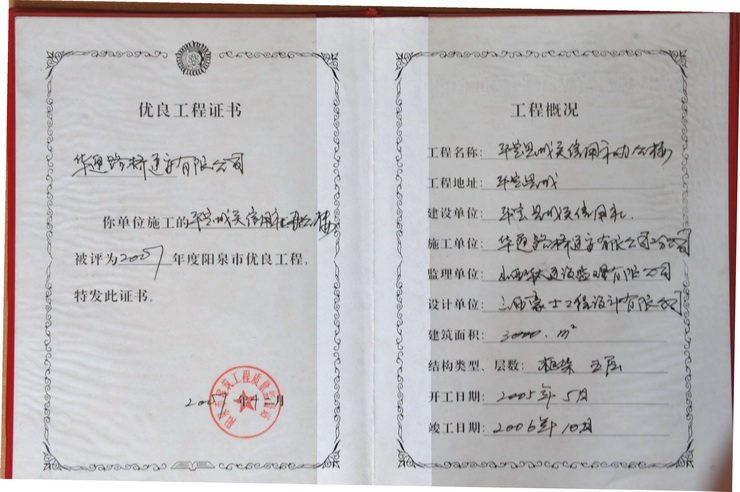 优良工程证书
华通路桥建筑有限公司
你单位施工的平定城关信用社办公楼
被评为2007年度阳泉市优良工程,
特发此证书.
2007年十二月
工程概况
工程名称: 平定县城关信用社办公楼
工程地址: 平定县城
建设单位: 平定县城关信用社.
施工单位: 华通路桥建筑有限公司二分公司
监理单位: 山西 建设监理有限公司
设计单位: 山西 工程设计有限公司
建筑面积: 3000.m²
结构类型、层数: 框架 五层
开工日期: 2005年5月
竣工日期: 2006年10月